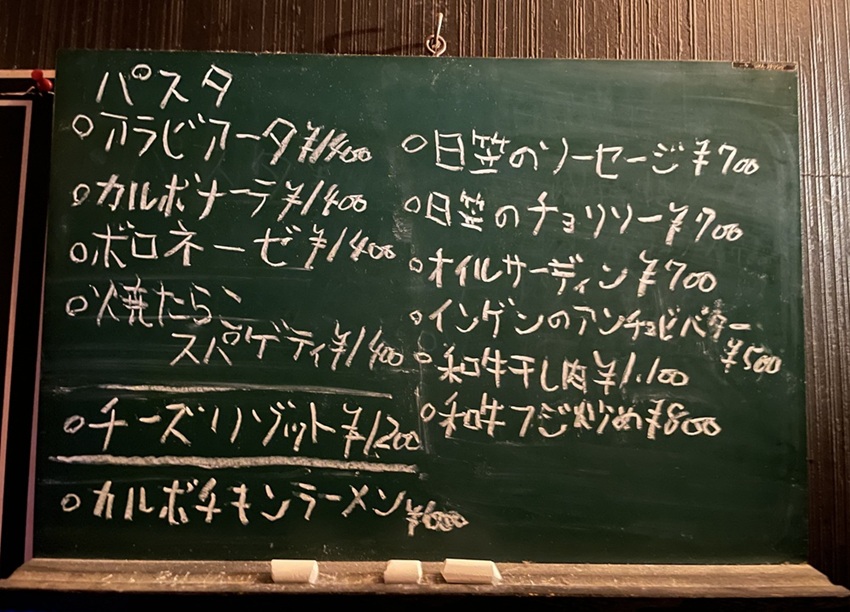 パスタ
○アラビアータ¥1400
○カルボナーラ¥1400
○ボロネーゼ¥1400
○焼たらこ
スパゲティ¥1400
○チーズリゾット¥1200
○カルボチキンラーメン¥600
○日笠のソーセージ¥700
○日笠のチョリソー¥700
○オイルサーディン¥700
○インゲンのアンチョビバター
¥500
○和牛干し肉¥1.100
○和牛スジ炒め¥800